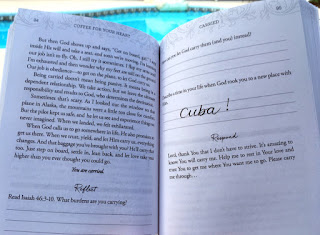 84
COFFEE FOR YOUR HEART
But then God shows up and says, "Get on board, girl!"
inside His will and take a seat, and soon we're soaring.
our job isn't to fly. Oh, I still try it sometimes. I flap my arms until
I'm exhausted and then wonder why my feet are still on the ground.
Our job is obedience—to get on the plane, to let God carry us.
Being carried doesn't mean being passive. It means being in a
dependent relationship. We take action, but we leave the
responsibility and results to God, who determines the destination.
Sometimes, that's scary. As I looked out the window on that
plane in Alaska, the mountains were a little too close for comfort.
But the pilot kept us safe, and he let us see and experience things we
never imagined. When we landed, we felt exhilarated.
When God calls us to go somewhere in life, He also promises to
get us there. When we trust, yield, and let Him carry us, everything
changes. And that baggage you've brought with you? He'll carry that
too. Just step on board, settle in, lean back, and let love take you
higher than you ever thought you could go.
You are carried.
Reflect
Read Isaiah 46:3-10. What burdens are you carrying?
CARRIED
85
let God carry them (and you) instead?
a time in your life when God took you to a new place with
Cuba!
Respond
Lord, thank You that I don't have to strive. It's amazing to
know You will carry me. Help me to rest in Your love and
trust You to get me where You want me to go. Please carry
me through...